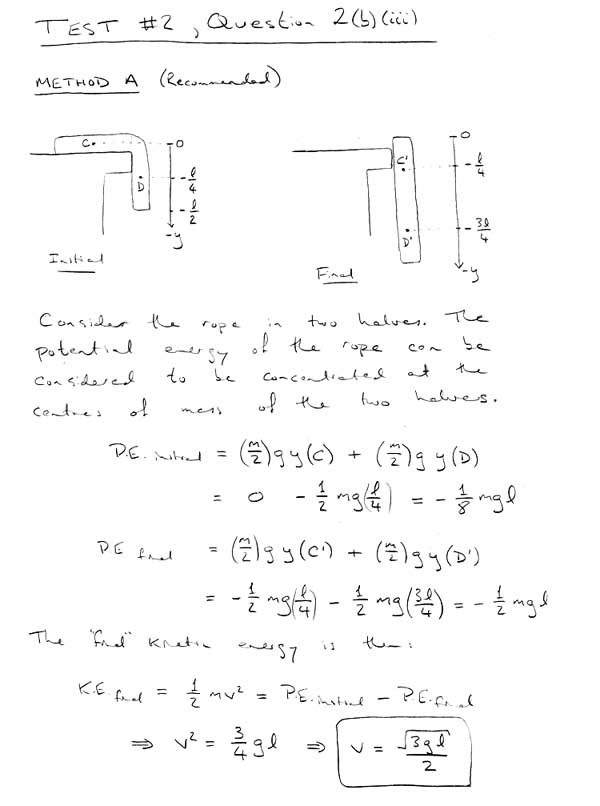 TEST #2, Question 2(b)(iii)
METHOD A (Recommended)
C
0
D
-l/4
-l/2
-y
Initial
0
C'
-l/4
D'
-3l/4
-y
Final
Consider the rope in two halves. The
potential energy of the rope can be
considered to be concentrated at the
centres of mass of the two halves.
P.E. initial = (m/2) g y(C) + (m/2) g y(D)
= 0 - 1/2 mg(l/4) = - 1/8 mgl
P.E. final = (m/2) g y(C') + (m/2) g y(D')
= - 1/2 mg(l/4) - 1/2 mg(3l/4) = - 1/2 mgl
The "final" kinetic energy is then:
K.E. final = 1/2 mv² = P.E. initial - P.E. final
⇒ v² = 3/4 gl ⇒ v = √(3gl)/2